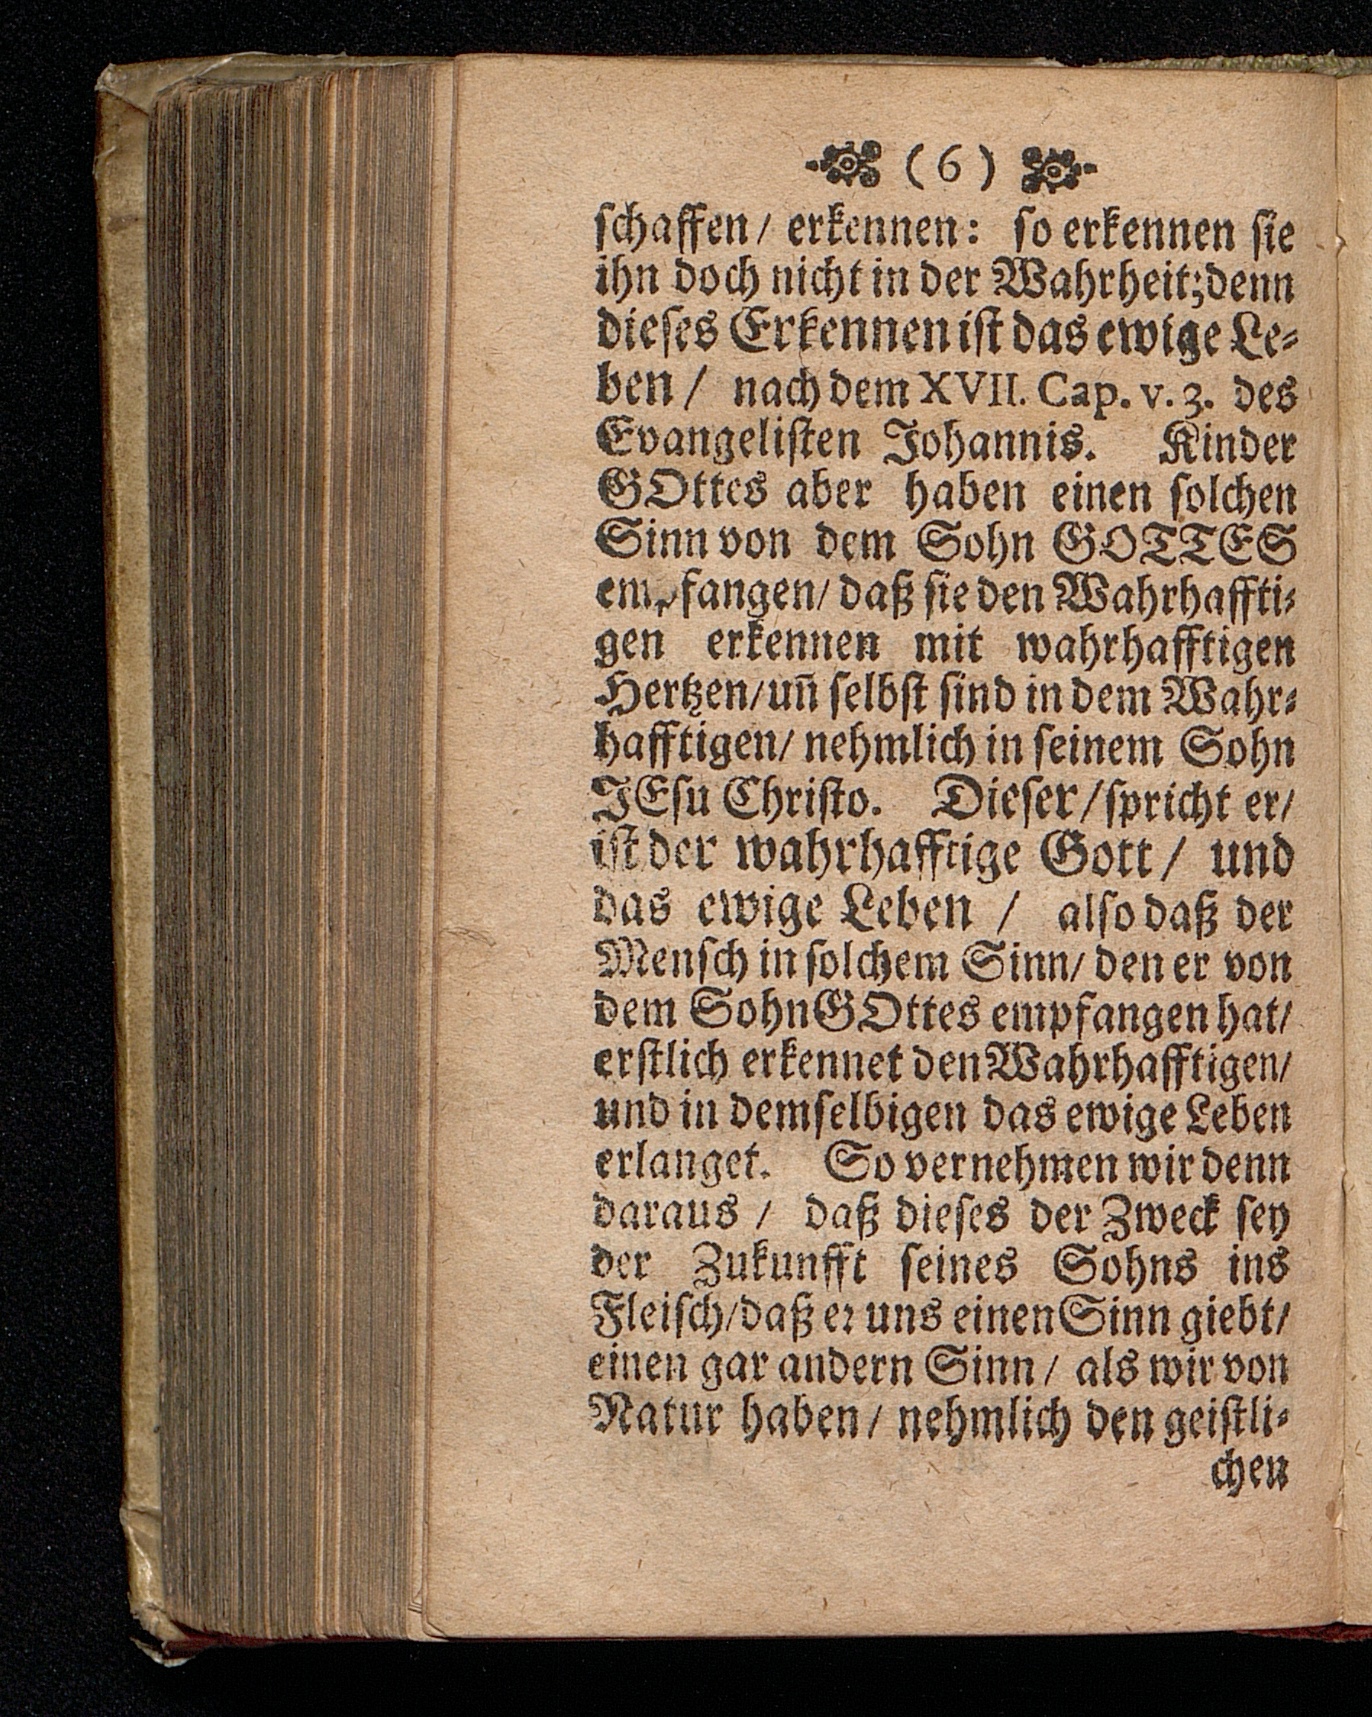 (6)
schaffen/ erkennen: so erkennen sie
ihn doch nicht in der Wahrheit; denn
dieses Erkennen ist das ewige Le-
ben/ nach dem XVII. Cap. v. 3. des
Evangelisten Johannis. Kinder
GOttes aber haben einen solchen
Sinn von dem Sohn GOTTES
empfangen/ daß sie den Wahrhaffti-
gen erkennen mit wahrhafftigen
Hertzen/ uñ selbst sind in dem Wahr-
hafftigen/ nehmlich in seinem Sohn
JEsu Christo. Dieser/ spricht er/
ist der wahrhafftige Gott/ und
das ewige Leben / also daß der
Mensch in solchem Sinn/ den er von
dem Sohn GOttes empfangen hat/
erstlich erkennet den Wahrhafftigen/
und in demselbigen das ewige Leben
erlanget. So vernehmen wir denn
daraus / daß dieses der Zweck sey
der Zukunfft seines Sohns ins
Fleisch/ daß er uns einen Sinn giebt/
einen gar andern Sinn/ als wir von
Natur haben/ nehmlich den geistli-
chen